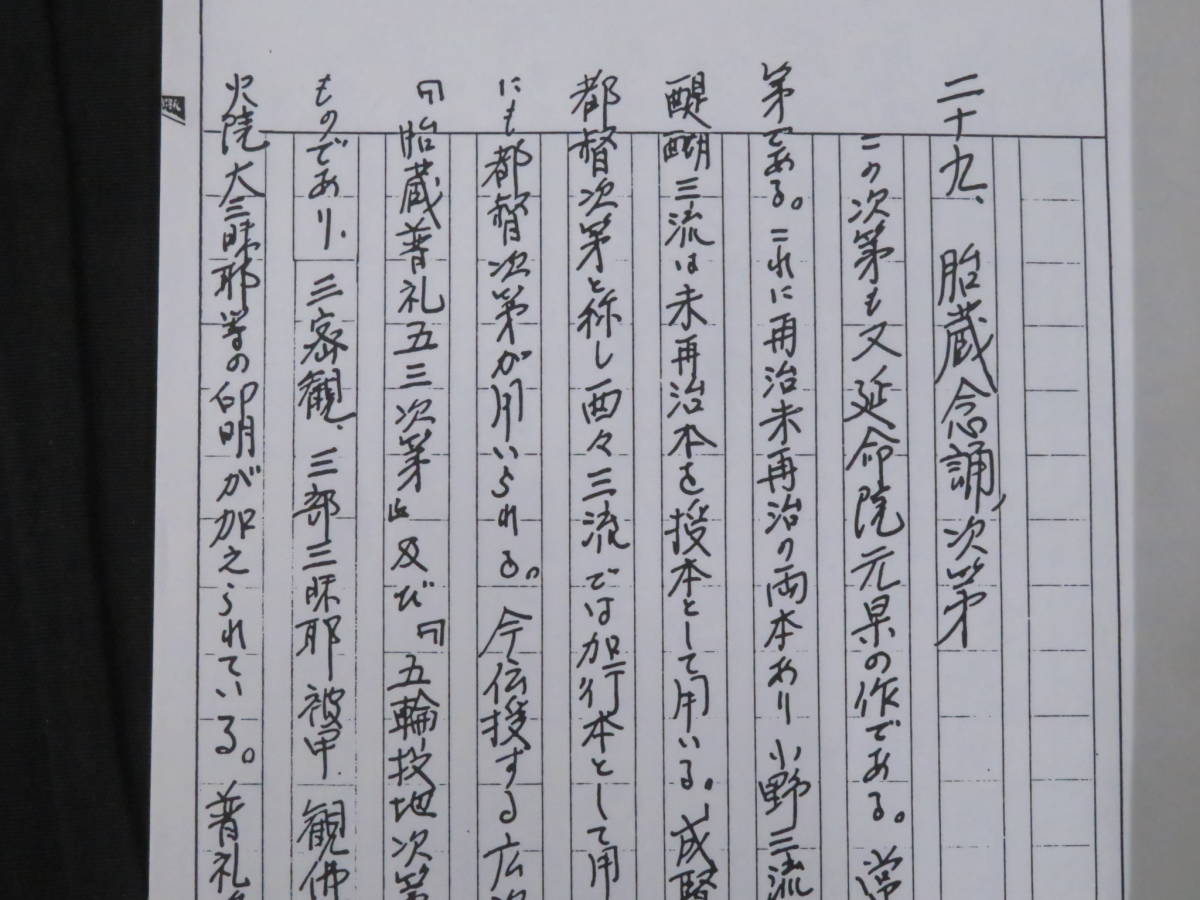 二十九、胎蔵念誦次第
この次第も又延命院元杲の作である。常
第である。これに再治未再治の両本あり小野三流
醍醐三流は未再治本を授本として用いる。成賢
都督次第と称し西々三流では加行本として用
にも都督次第が用いられる。今伝授する広次
『胎蔵普礼五三次第』及び『五輪投地次第
ものであり、三密観、三部三昧耶被甲、観佛
火院大三昧耶等の印明が加えられている。普礼